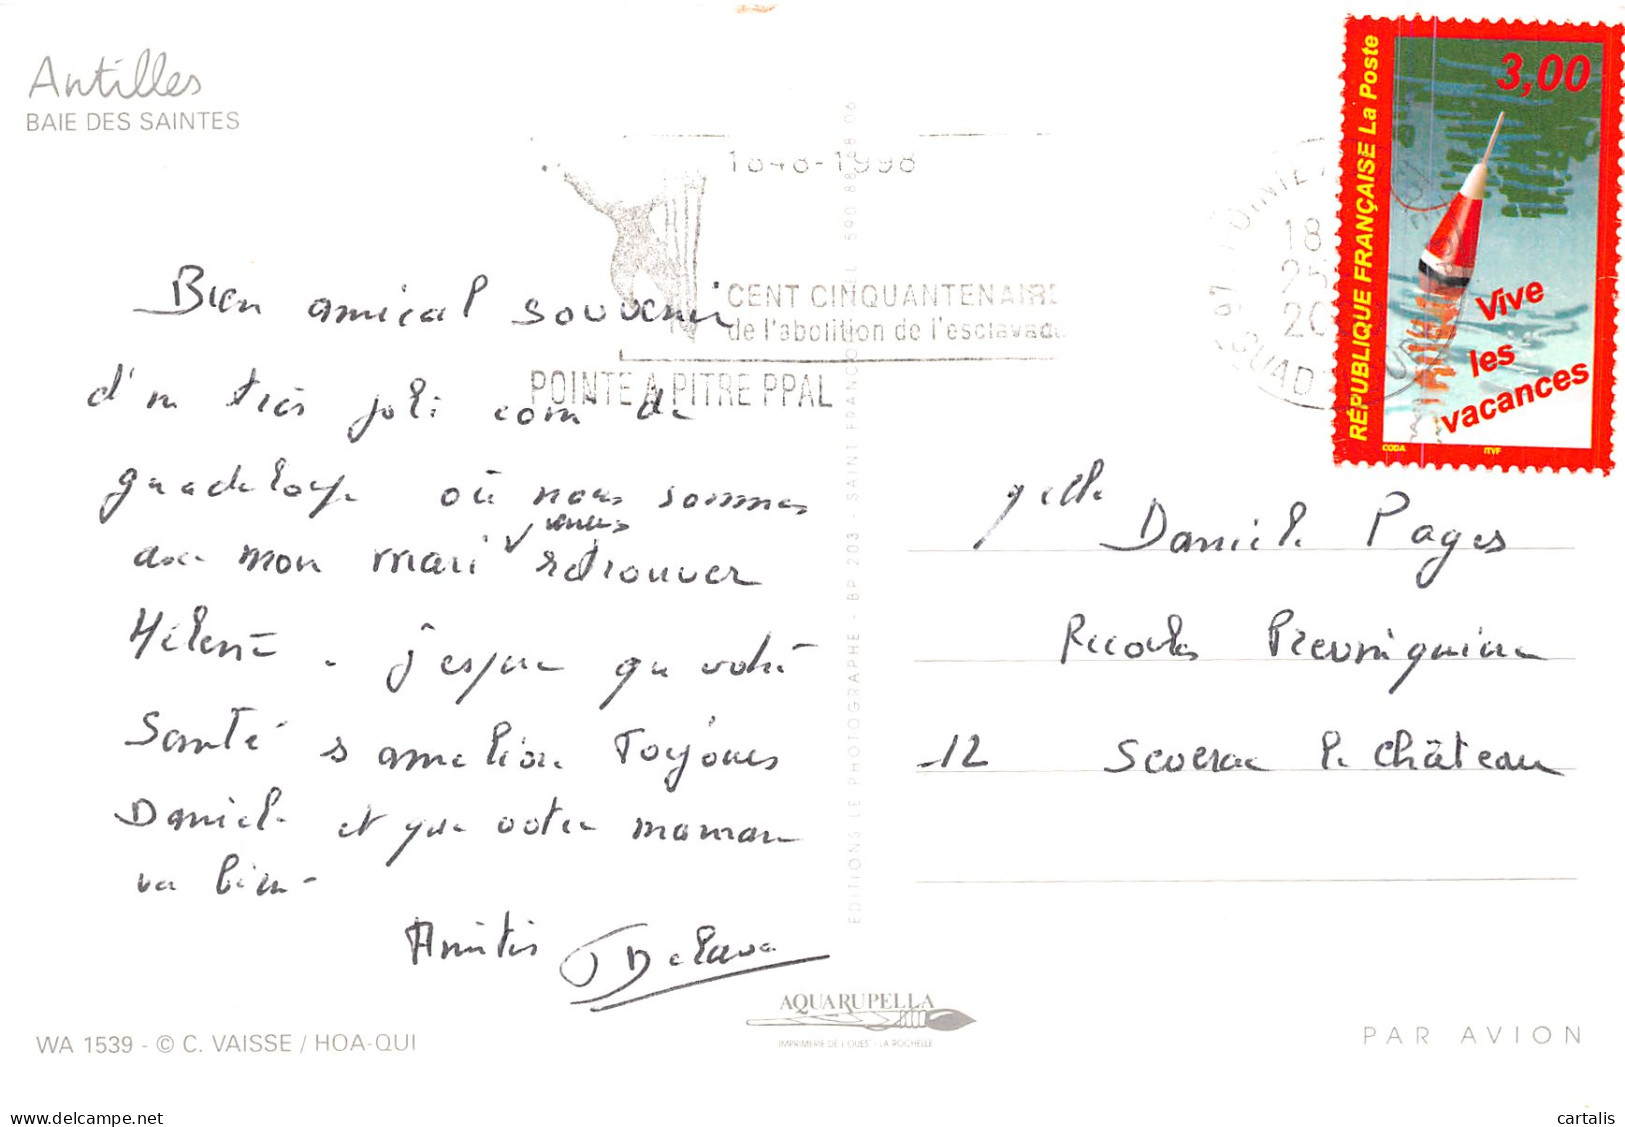 Antilles
BAIE DES SAINTES
1848-1998
CENT CINQUANTENAIRE
de l'abolition de l'esclavage
POINTE A PITRE PPAL
18
25
20
RÉPUBLIQUE FRANÇAISE La Poste
3,00
Vive
les
vacances
CODA
ITVF
Bien amical souvenir
d'un très joli coin de
guadeloupe où nous sommes
venus
avec mon mari retrouver
Hélène - j'espère que votre
Santé s'améliore Toujours
Daniele et que votre maman
va bien -
Amitiés Delava
Melle Daniele Pages
12 Severac le Château
EDITIONS LE PHOTOGRAPHE - BP 203 - SAINT FRANÇOIS
AQUARUPELLA
IMPRIMERIE DE L'OUEST - LA ROCHELLE
WA 1539 - © C. VAISSE / HOA-QUI
PAR AVION
delcampe.net
cartalis